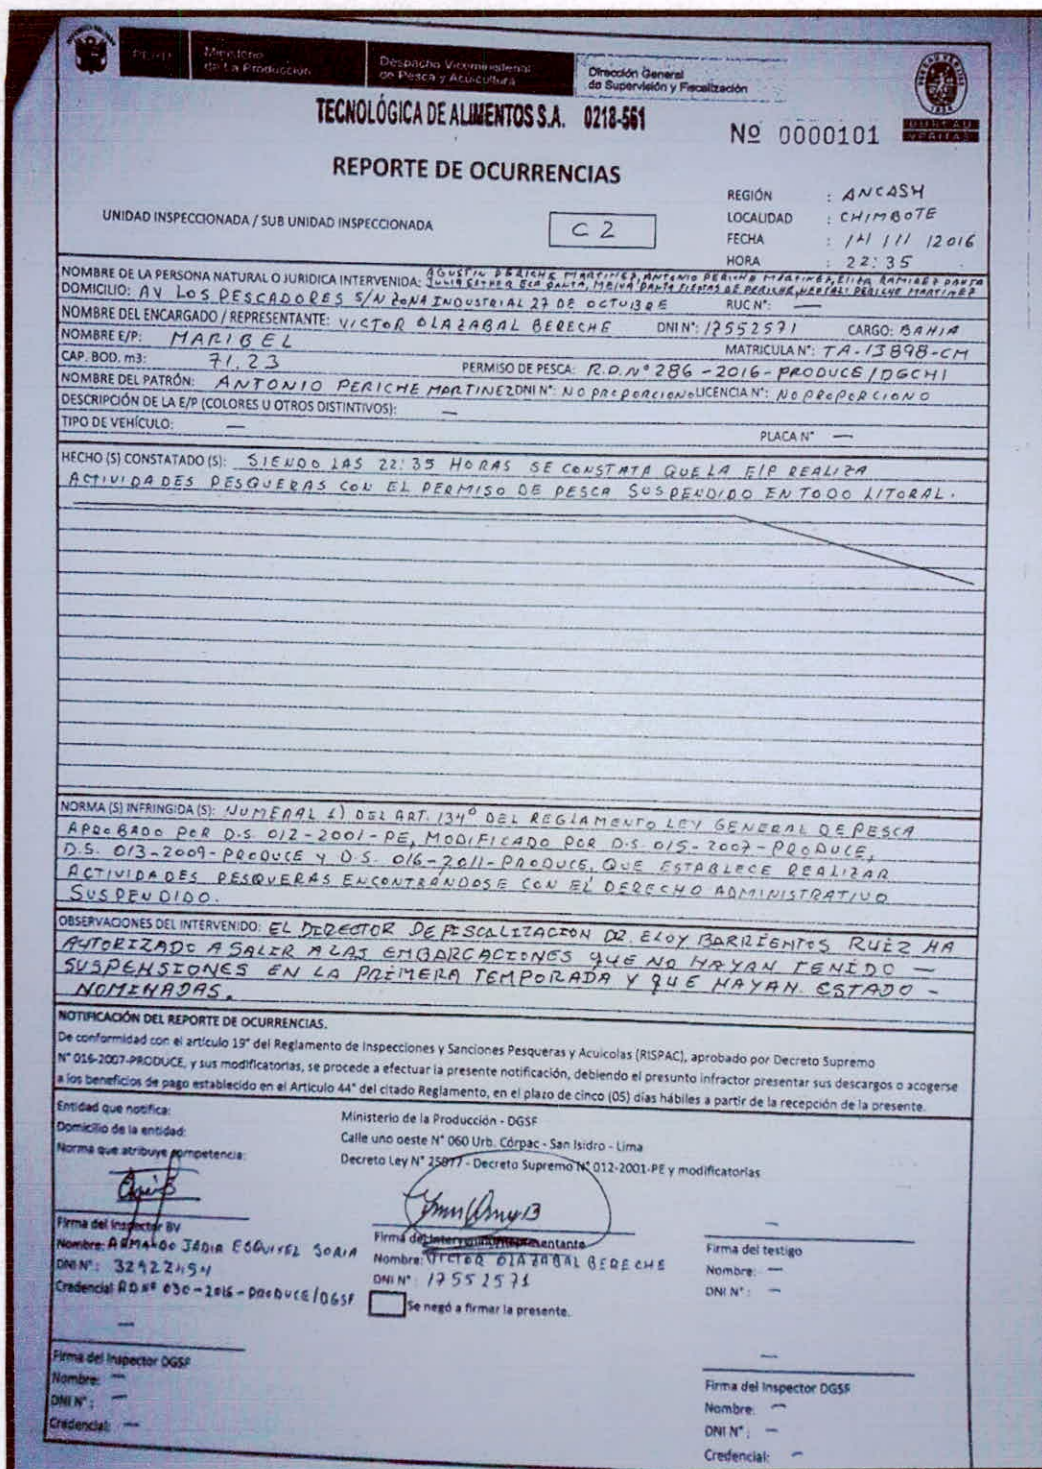 PERÚ
Ministerio
de La Producción
Despacho Viceministerial
de Pesca y Acuicultura
Dirección General
de Supervisión y Fiscalización
BUREAU
VERITAS
1828
TECNOLÓGICA DE ALIMENTOS S.A. 0218-561
Nº 0000101
REPORTE DE OCURRENCIAS
UNIDAD INSPECCIONADA / SUB UNIDAD INSPECCIONADA
C 2
REGIÓN : ANCASH
LOCALIDAD : CHIMBOTE
FECHA : 14 / 11 / 2016
HORA : 22:35
NOMBRE DE LA PERSONA NATURAL O JURIDICA INTERVENIDA: AGUSTIN PERICHE MARTINEZ, ANTONIO PERICHE MARTINEZ, ELISA RAMIREZ PANTA
JULIA ESTHER ECA PANTA, MELVA PANTA FIESTAS DE PERICHE, NEPTALI PERICHE MARTINEZ
DOMICILIO: AV LOS PESCADORES S/N ZONA INDUSTRIAL 27 DE OCTUBRE RUC N°: —
NOMBRE DEL ENCARGADO / REPRESENTANTE: VICTOR OLAZABAL BERECHE DNI N°: 17552571 CARGO: BAHIA
NOMBRE E/P: MARIBEL MATRICULA N°: TA-13898-CM
CAP. BOD. m3: 71.23 PERMISO DE PESCA: R.D. N° 286-2016-PRODUCE/DGCHI
NOMBRE DEL PATRÓN: ANTONIO PERICHE MARTINEZ DNI N°: NO PROPORCIONO LICENCIA N°: NO PROPORCIONO
DESCRIPCIÓN DE LA E/P (COLORES U OTROS DISTINTIVOS): —
TIPO DE VEHÍCULO: — PLACA N° —
HECHO (S) CONSTATADO (S): SIENDO LAS 22:35 HORAS SE CONSTATA QUE LA E/P REALIZA
ACTIVIDADES PESQUERAS CON EL PERMISO DE PESCA SUSPENDIDO EN TODO LITORAL.
NORMA (S) INFRINGIDA (S): NUMERAL 1) DEL ART. 134° DEL REGLAMENTO LEY GENERAL DE PESCA
APROBADO POR D.S. 012-2001-PE, MODIFICADO POR D.S. 015-2007-PRODUCE,
D.S. 013-2009-PRODUCE Y D.S. 016-2011-PRODUCE, QUE ESTABLECE REALIZAR
ACTIVIDADES PESQUERAS ENCONTRÁNDOSE CON EL DERECHO ADMINISTRATIVO
SUSPENDIDO.
OBSERVACIONES DEL INTERVENIDO: EL DIRECTOR DE FISCALIZACION DR. ELOY BARRIENTOS RUIZ HA
AUTORIZADO A SALIR A LAS EMBARCACIONES QUE NO HAYAN TENIDO —
SUSPENSIONES EN LA PRIMERA TEMPORADA Y QUE HAYAN ESTADO -
NOMINADAS.
NOTIFICACIÓN DEL REPORTE DE OCURRENCIAS.
De conformidad con el artículo 19° del Reglamento de Inspecciones y Sanciones Pesqueras y Acuicolas (RISPAC), aprobado por Decreto Supremo
N° 016-2007-PRODUCE, y sus modificatorias, se procede a efectuar la presente notificación, debiendo el presunto infractor presentar sus descargos o acogerse
a los beneficios de pago establecido en el Articulo 44° del citado Reglamento, en el plazo de cinco (05) días hábiles a partir de la recepción de la presente.
Entidad que notifica: Ministerio de la Producción - DGSF
Domicilio de la entidad: Calle uno oeste N° 060 Urb. Córpac - San Isidro - Lima
Norma que atribuye competencia: Decreto Ley N° 25977 - Decreto Supremo N° 012-2001-PE y modificatorias
Firma del Inspector BV
Nombre: ARMANDO JADIR ESQUIVEL SORIA
DNI N°: 32922454
Credencial RD N° 030-2016-PRODUCE/DGSF
—
Firma del Intervenido/Representante
Nombre: VICTOR OLAZABAL BERECHE
DNI N°: 17552571
Se negó a firmar la presente.
—
Firma del testigo
Nombre: —
DNI N°: —
Firma del Inspector DGSF
Nombre: —
DNI N°: —
Credencial: —
—
Firma del Inspector DGSF
Nombre: —
DNI N°: —
Credencial: —